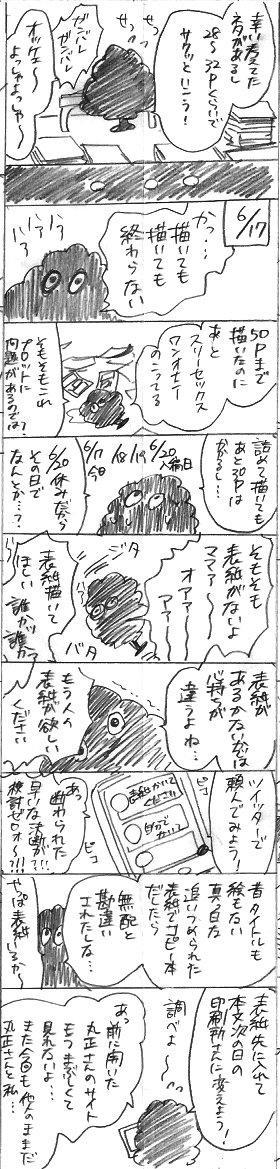 幸い考えてた
ネタがあるし
28〜32Pくらいで
サクッといこう!
せっ
せっ
ガンバレ
ガンバレ
オッケェ〜
よっしゃよっしゃ〜
6/17
かっ…
描いても
描いても
終わらない
50Pまで
描いたのに
あと
スリーセックス
ワンオナニー
のこってる
そもそもこれ
プロットに
問題があるのでは?
詰めて描いても
あと30Pは
かかるし…
6/20
入稿日
19
18
6/17
今日
6/20休みだから
その日で
なんとか…?
そもそも
表紙がないよ
ママァ〜
オアアー
アアアー
ジタ
バタ
表紙描いて
ほしい
誰かッ
誰かッ
表紙が
あるかないかでは
心持ちが
違うよね…
もう人の
表紙が欲しい
ください
ツイッターで
頼んでみよう!
ピコ
表紙かいて
ください
自分で
かいて
ピコ
あっ
断わられた
早いな決断が!?
検討ゼロォ!?!!
昔タイトルも
絵もない
真っ白な
追いつめられた
表紙でコピー本
だしたら
無配と
勘違い
されたしな…
やっぱ表紙
いるか〜
表紙先に入れて
本文次の日の
印刷所さんに変えよう!
調べよ〜
あっ前に開いた
丸正さんのサイト
もうまぶしくて
見れないよ…
また今回も他人のままだ
丸正さんと私…